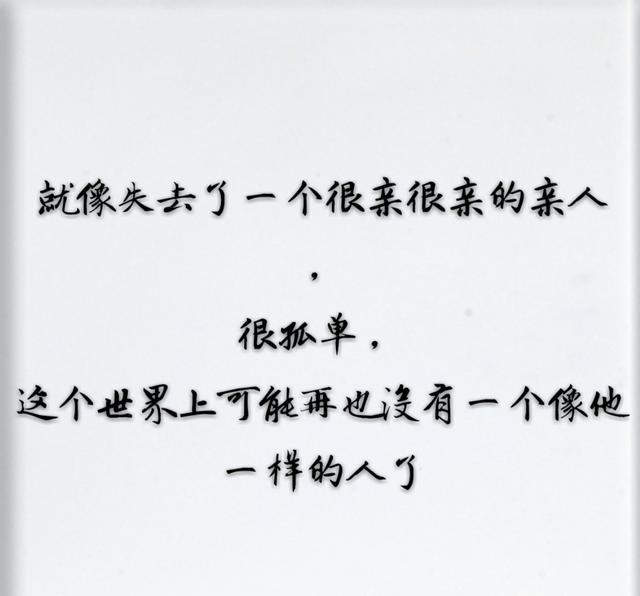 就像失去了一个很亲很亲的亲人
，
很孤单，
这个世界上可能再也没有一个像他
一样的人了